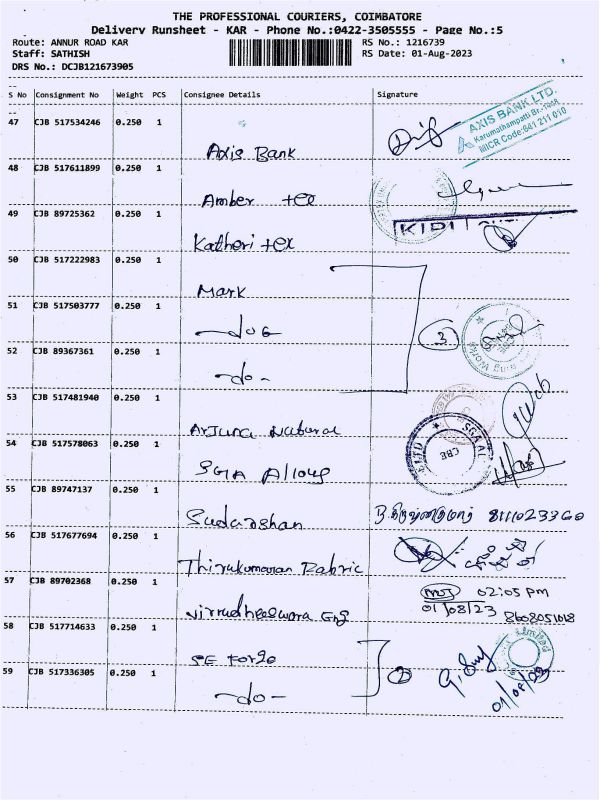 THE PROFESSIONAL COURIERS, COIMBATORE
Delivery Runsheet - KAR - Phone No.:0422-3505555 - Page No.:5
Route: ANNUR ROAD KAR RS No.: 1216739
Staff: SATHISH RS Date: 01-Aug-2023
DRS No.: DCJB121673905
S No Consignment No Weight PCS Consignee Details Signature
47 CJB 517534246 0.250 1 Axis Bank
AXIS BANK LTD.
Karumathampatti Br.-1468
MICR Code:641 211 010
48 CJB 517611899 0.250 1 Amber tex
49 CJB 89725362 0.250 1 Katheri tex
50 CJB 517222983 0.250 1 Mark
51 CJB 517503777 0.250 1 -do-
3
52 CJB 89367361 0.250 1 -do-
53 CJB 517481940 0.250 1 Arjuna Natural
54 CJB 517578063 0.250 1 SGA Alloys
SGA AL
LTD
CBE
55 CJB 89747137 0.250 1 Sudarshan
56 CJB 517677694 0.250 1 Thirukumaran Fabric
57 CJB 89702368 0.250 1 Virudheeswara Eng
02:05 pm
01/08/23
8608051018
58 CJB 517714633 0.250 1 SE Forge
59 CJB 517336305 0.250 1 -do-
2
Limited